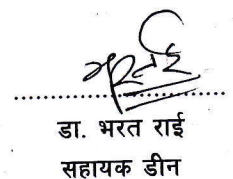 .................................
डा. भरत राई
सहायक डीन